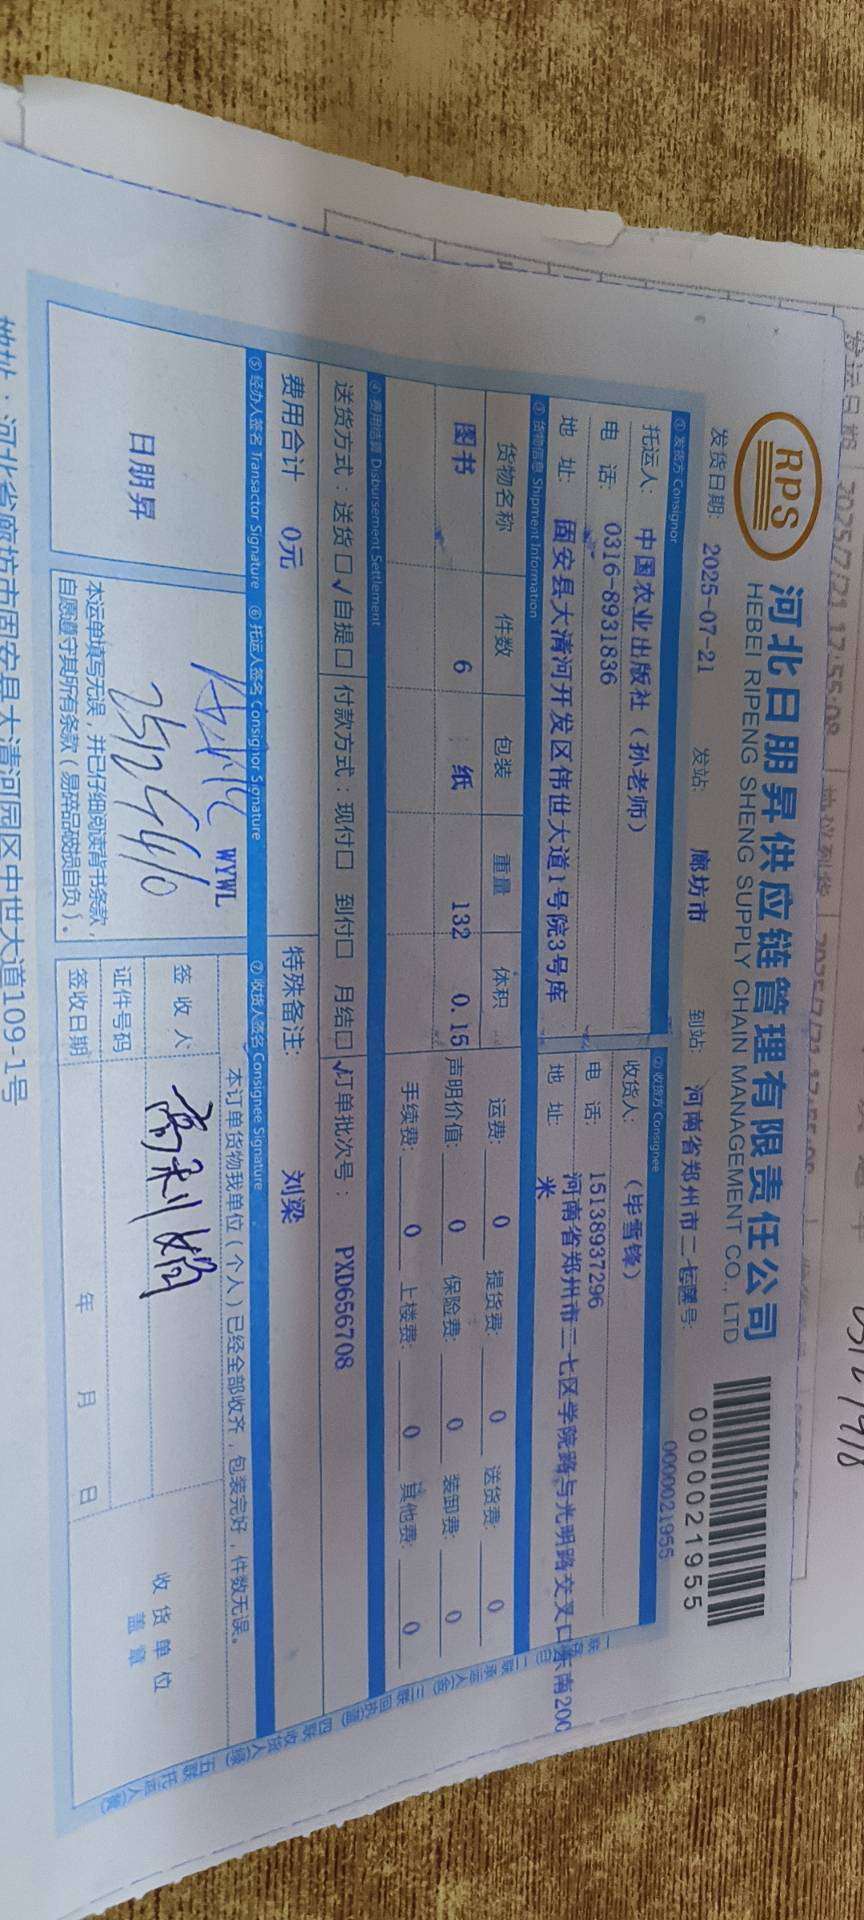 2025/7/21 17:55:08
RPS
河北日朋昇供应链管理有限责任公司
HEBEI RIPENG SHENG SUPPLY CHAIN MANAGEMENT CO., LTD
0000021955
发货日期: 2025-07-21 发站: 廊坊市 到站: 河南省郑州市二七 号: 0000021955
① 发货方 Consignor
② 收货方 Consignee
托运人: 中国农业出版社（孙老师）
收货人: （毕雪锋）
电 话: 0316-8931836
电 话: 15138937296
地 址: 固安县大清河开发区伟世大道1号院3号库
地 址: 河南省郑州市二七区学院路与光明路交叉口东南200
米
③ 货物信息 Shipment Information
货物名称 件数 包装 重量 体积
图书 6 纸 132 0.15
运费: 0 提货费: 0 送货费: 0
声明价值: 0 保险费: 0 装卸费: 0
手续费: 0 上楼费: 0 其他费: 0
④ 费用结算 Disbursement Settlement
送货方式：送货□ √自提□ 付款方式：现付□ 到付□ 月结□ √ 订单批次号： PXD656708
费用合计 0元 特殊备注: 刘梁
⑤ 经办人签名 Transactor Signature ⑥ 托运人签名 Consignor Signature ⑦ 收货人签名 Consignee Signature
日朋昇
WYWL
本运单填写无误，并已仔细阅读背书条款，
自愿遵守其所有条款（易碎品破损自负）。
本订单货物我单位（个人）已经全部收齐，包装完好，件数无误。
签 收 人
证件号码
签收日期 年 月 日
收 货 单 位
盖 章
地址：河北省廊坊市固安县大清河园区中世大道109-1号